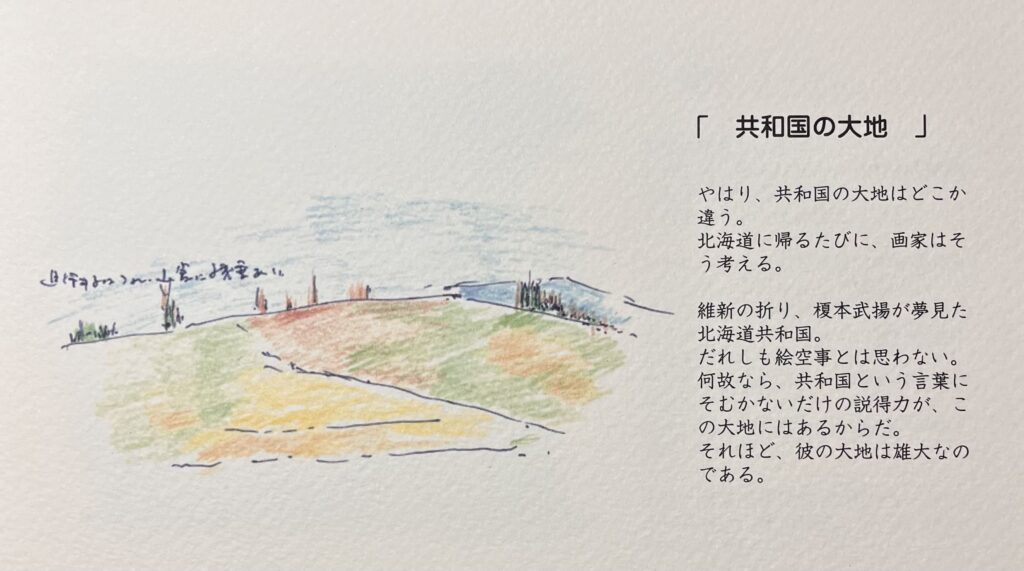 「　共和国の大地　」
やはり、共和国の大地はどこか
違う。
北海道に帰るたびに、画家はそ
う考える。
維新の折り、榎本武揚が夢見た
北海道共和国。
だれしも絵空事とは思わない。
何故なら、共和国という言葉に
そむかないだけの説得力が、こ
の大地にはあるからだ。
それほど、彼の大地は雄大なの
である。